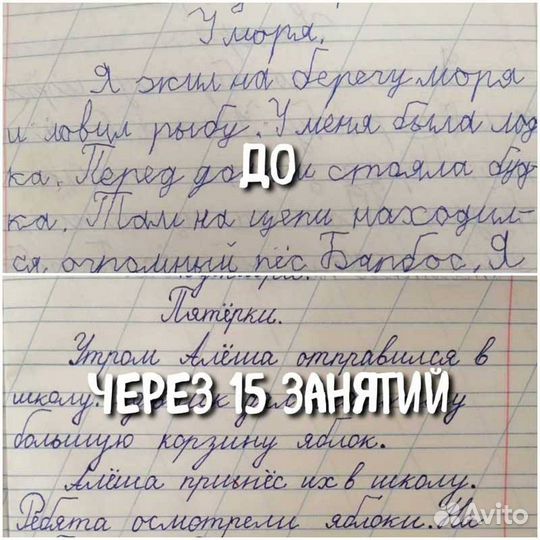 У моря.
Я жил на беречу моря
и ловил рыбу. У меня была лод
ка. Перед до м стояла буд-
ДО
ка. Там на цепи находил-
ся огромный пёс Барбос. Я
Пятёрки.
Утром Алёша отправился в
школу. у
ЧЕРЕЗ 15 ЗАНЯТИЙ
большую корзину яблок.
Алёша принёс их в школу.
Ребята осмотрели яблоки. На
Avito